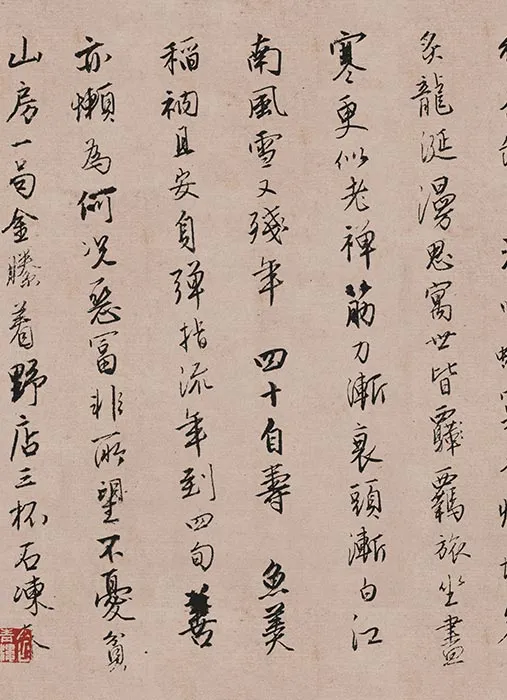 炙龍涎漫思寓世皆羈旅坐盡
寒更似老禪筋力漸衰頭漸白江
南風雪又殘年 四十自壽 魚羹
稻衲且安身彈指流年到四旬善
亦懶為何況惡富非所望不憂貧
山房一局金縢着野店三杯石凍春